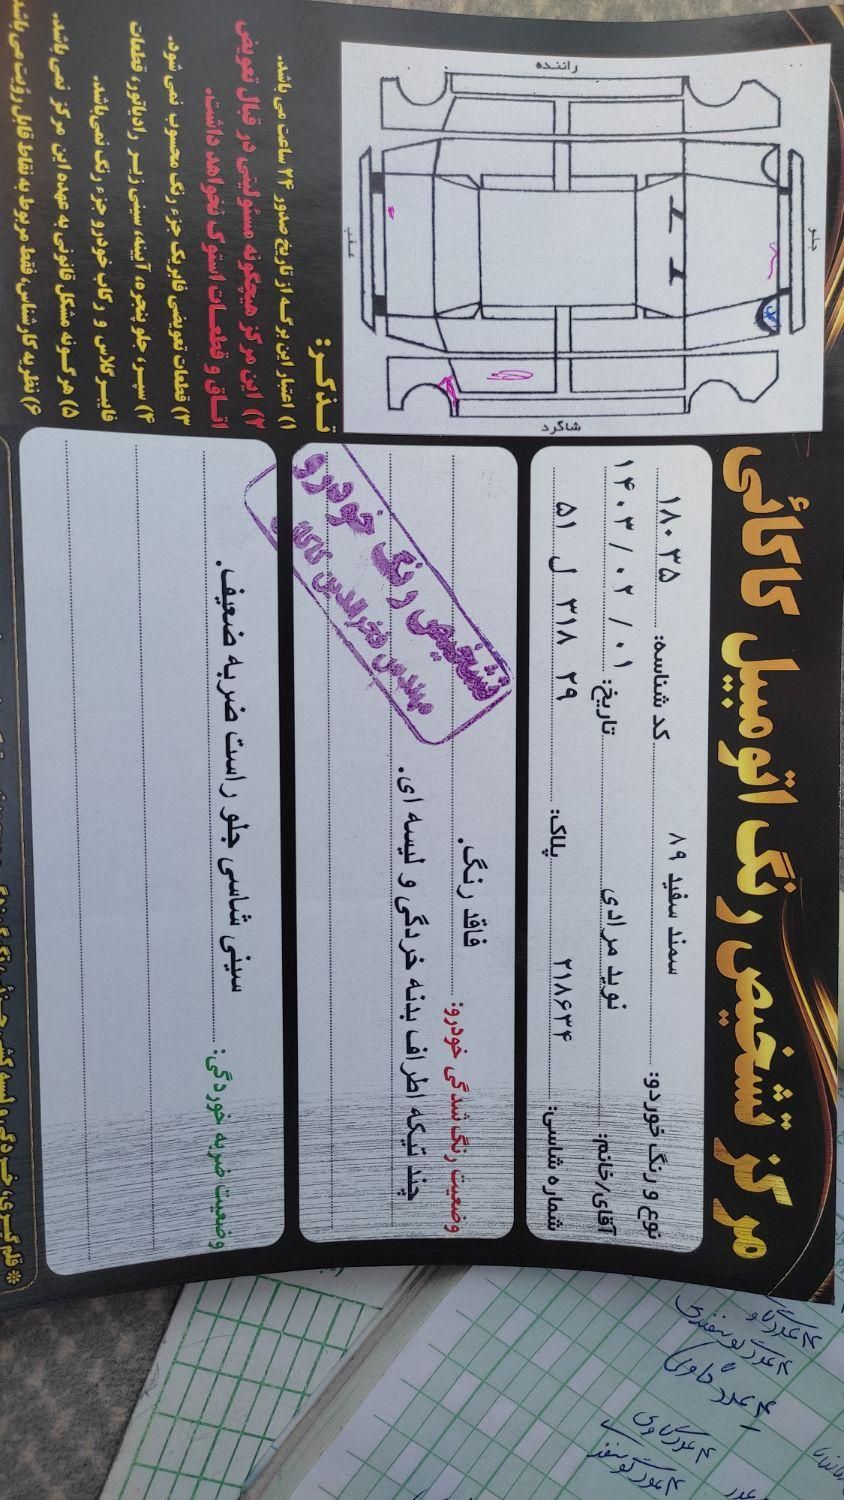 مرکز تشخیص رنگ اتومبیل کاکائی
نوع و رنگ خوردو: سمند سفید ۸۹ کد شناسه: ۱۸۰۳۵
آقای/خانم: نوید مرادی تاریخ: ۱۴۰۳/۰۲/۰۱
شماره شاسی: ۲۱۸۶۳۴ پلاک: ۲۹ ۳۱۸ ل ۵۱
وضعیت رنگ شدگی خودرو: فاقد رنگ.
چند تیکه اطراف بدنه خردگی و لیسه ای.
تشخیص رنگ خودرو
مهندس فخرالدین کاکائی
وضعیت ضربه خوردگی: سینی شاسی جلو راست ضربه ضعیف.
راننده
جلو
عقب
شاگرد
تذکر:
۱) اعتبار این برگه از تاریخ صدور ۲۴ ساعت می باشد.
۲) این مرکز هیچگونه مسئولیتی در قبال تعویض
اتاق و قطعات استوک نخواهد داشت.
۳) قطعات تعویضی فابریک جزء رنگ محسوب نمی شود.
۴) سپر، جلو پنجره، آیینه، سینی زیر رادیاتور، قطعات
فایبرگلاس و رکاب خودرو جزء رنگ نمی باشد.
۵) هرگونه مشکل قانونی به عهده این مرکز نمی باشد.
۶) نظریه کارشناس، فقط مربوط به نقاط قابل رؤیت می باشد